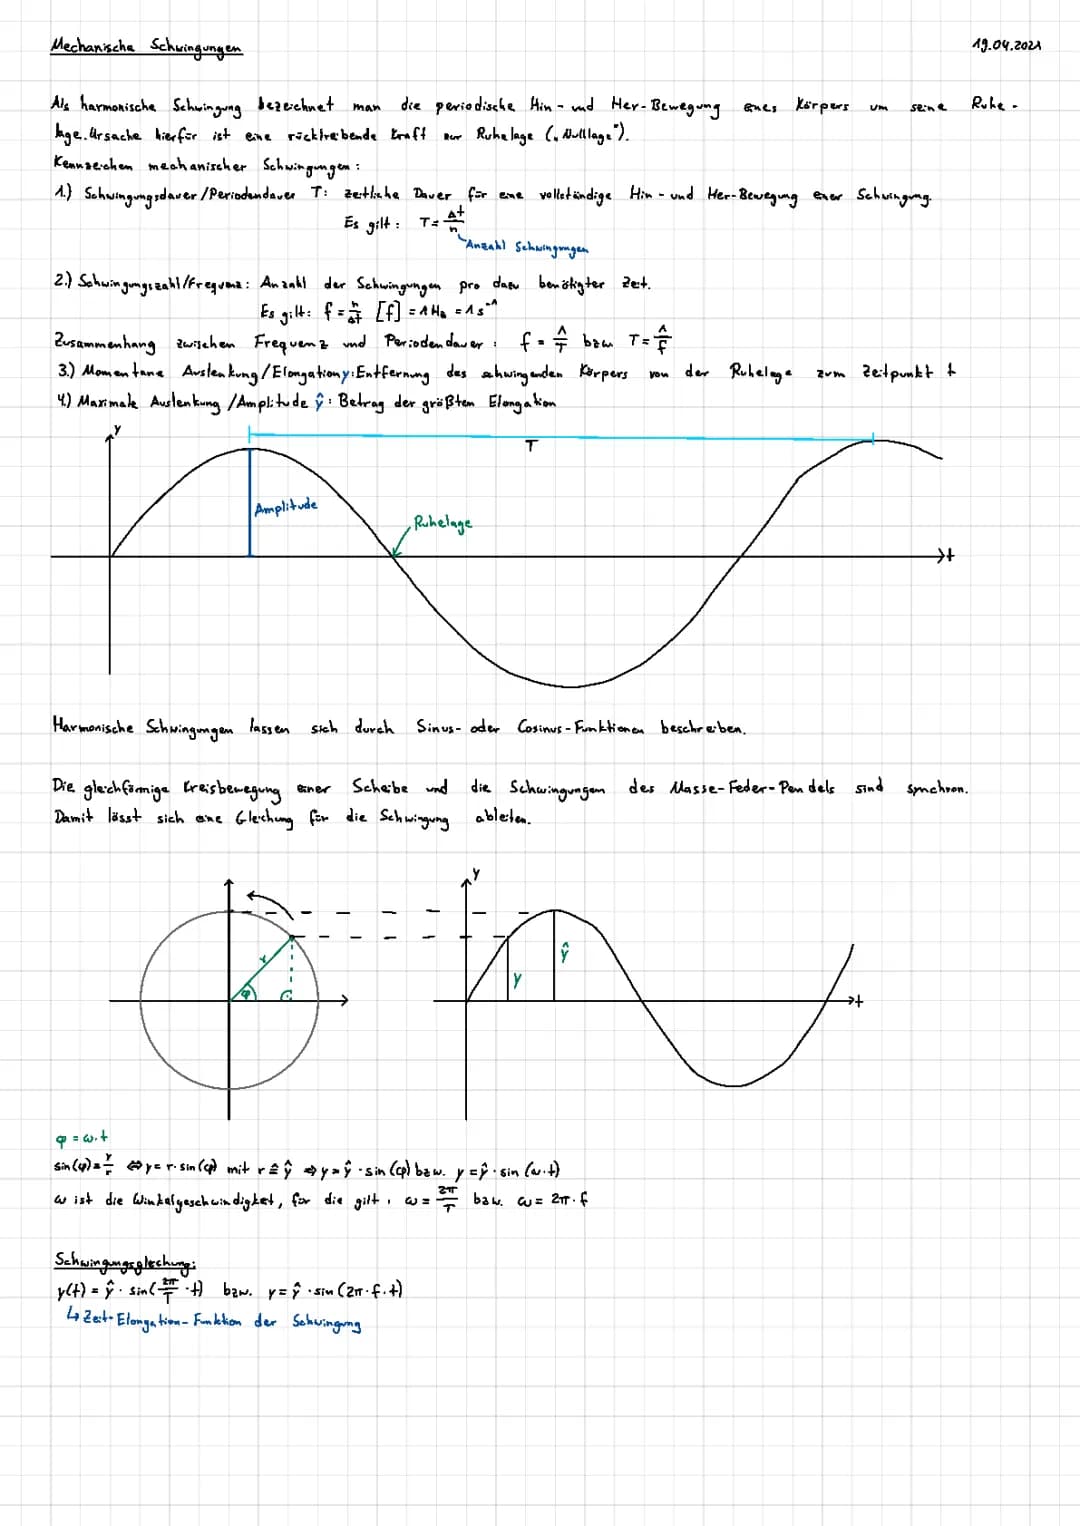 Mechanische Schwingungen
19.04.2021
Als harmonische Schwingung bezeichnet man die periodische Hin- und Her-Bewegung eines Körpers um seine Ruhe-
lage. Ursache hierfür ist eine rücktreibende Kraft zur Ruhelage („Nulllage").
Kennzeichen mechanischer Schwingungen:
1.) Schwingungsdauer/Periodendauer T: zeitliche Dauer für eine vollständige Hin- und Her-Bewegung einer Schwingung.
Es gilt: T = Δt/n
Anzahl Schwingungen
2.) Schwingungszahl/Frequenz: Anzahl der Schwingungen pro dazu benötigter Zeit.
Es gilt: f = n/Δt [f] = 1 Hz = 1 s⁻¹
Zusammenhang zwischen Frequenz und Periodendauer: f = 1/T bzw T = 1/f
3.) Momentane Auslenkung/Elongation y: Entfernung des schwingenden Körpers von der Ruhelage zum Zeitpunkt t
4.) Maximale Auslenkung/Amplitude ŷ: Betrag der größten Elongation
y
T
Amplitude
Ruhelage
t
Harmonische Schwingungen lassen sich durch Sinus- oder Cosinus-Funktionen beschreiben.
Die gleichförmige Kreisbewegung einer Scheibe und die Schwingungen des Masse-Feder-Pendels sind synchron.
Damit lässt sich eine Gleichung für die Schwingung ableiten.
y
r
φ
y
ŷ
t
φ = ω·t
sin(φ) = y/r ⇔ y = r·sin(φ) mit r ≙ ŷ ⇒ y = ŷ·sin(φ) bzw. y = ŷ·sin(ω·t)
ω ist die Winkelgeschwindigket, für die gilt: ω = 2π/T bzw. ω = 2π·f
Schwingungsgleichung:
y(t) = ŷ·sin(2π/T·t) bzw. y = ŷ·sin(2π·f·t)
↳ Zeit-Elongation-Funktion der Schwingung